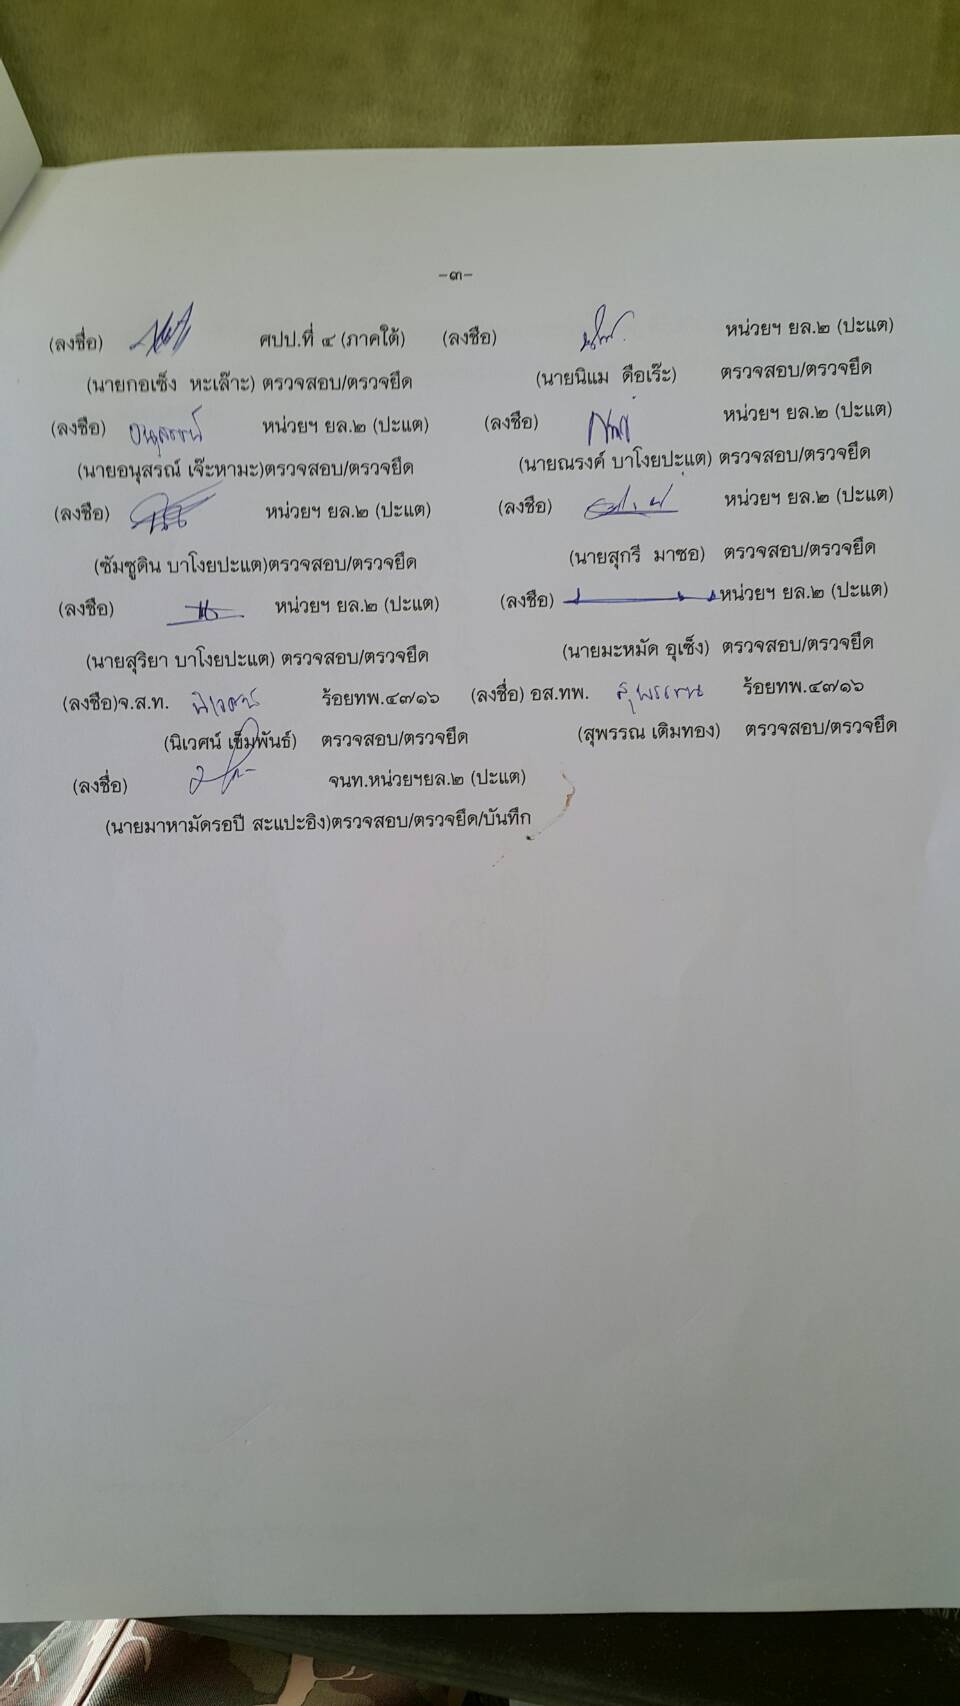 -๓-
(ลงชื่อ) ศปป.ที่ ๔ (ภาคใต้) (ลงชื่อ) หน่วยฯ ยล.๒ (ปะแต)
(นายกอเซ็ง หะเล๊าะ) ตรวจสอบ/ตรวจยึด (นายนิแม ดือเร๊ะ) ตรวจสอบ/ตรวจยึด
(ลงชื่อ) อนุสรณ์ หน่วยฯ ยล.๒ (ปะแต) (ลงชื่อ) หน่วยฯ ยล.๒ (ปะแต)
(นายอนุสรณ์ เจ๊ะหามะ)ตรวจสอบ/ตรวจยึด (นายณรงค์ บาโงยปะแต) ตรวจสอบ/ตรวจยึด
(ลงชื่อ) หน่วยฯ ยล.๒ (ปะแต) (ลงชื่อ) หน่วยฯ ยล.๒ (ปะแต)
(ซัมซูดิน บาโงยปะแต)ตรวจสอบ/ตรวจยึด (นายสุกรี มาซอ) ตรวจสอบ/ตรวจยึด
(ลงชื่อ) หน่วยฯ ยล.๒ (ปะแต) (ลงชื่อ) หน่วยฯ ยล.๒ (ปะแต)
(นายสุริยา บาโงยปะแต) ตรวจสอบ/ตรวจยึด (นายมะหมัด อุเซ็ง) ตรวจสอบ/ตรวจยึด
(ลงชื่อ)จ.ส.ท. นิเวศน์ ร้อยทพ.๔๗๑๖ (ลงชื่อ) อส.ทพ. สุพรรณ ร้อยทพ.๔๗๑๖
(นิเวศน์ เข็มพันธ์) ตรวจสอบ/ตรวจยึด (สุพรรณ เติมทอง) ตรวจสอบ/ตรวจยึด
(ลงชื่อ) จนท.หน่วยฯยล.๒ (ปะแต)
(นายมาหามัดรอปี สะแปะอิง)ตรวจสอบ/ตรวจยึด/บันทึก